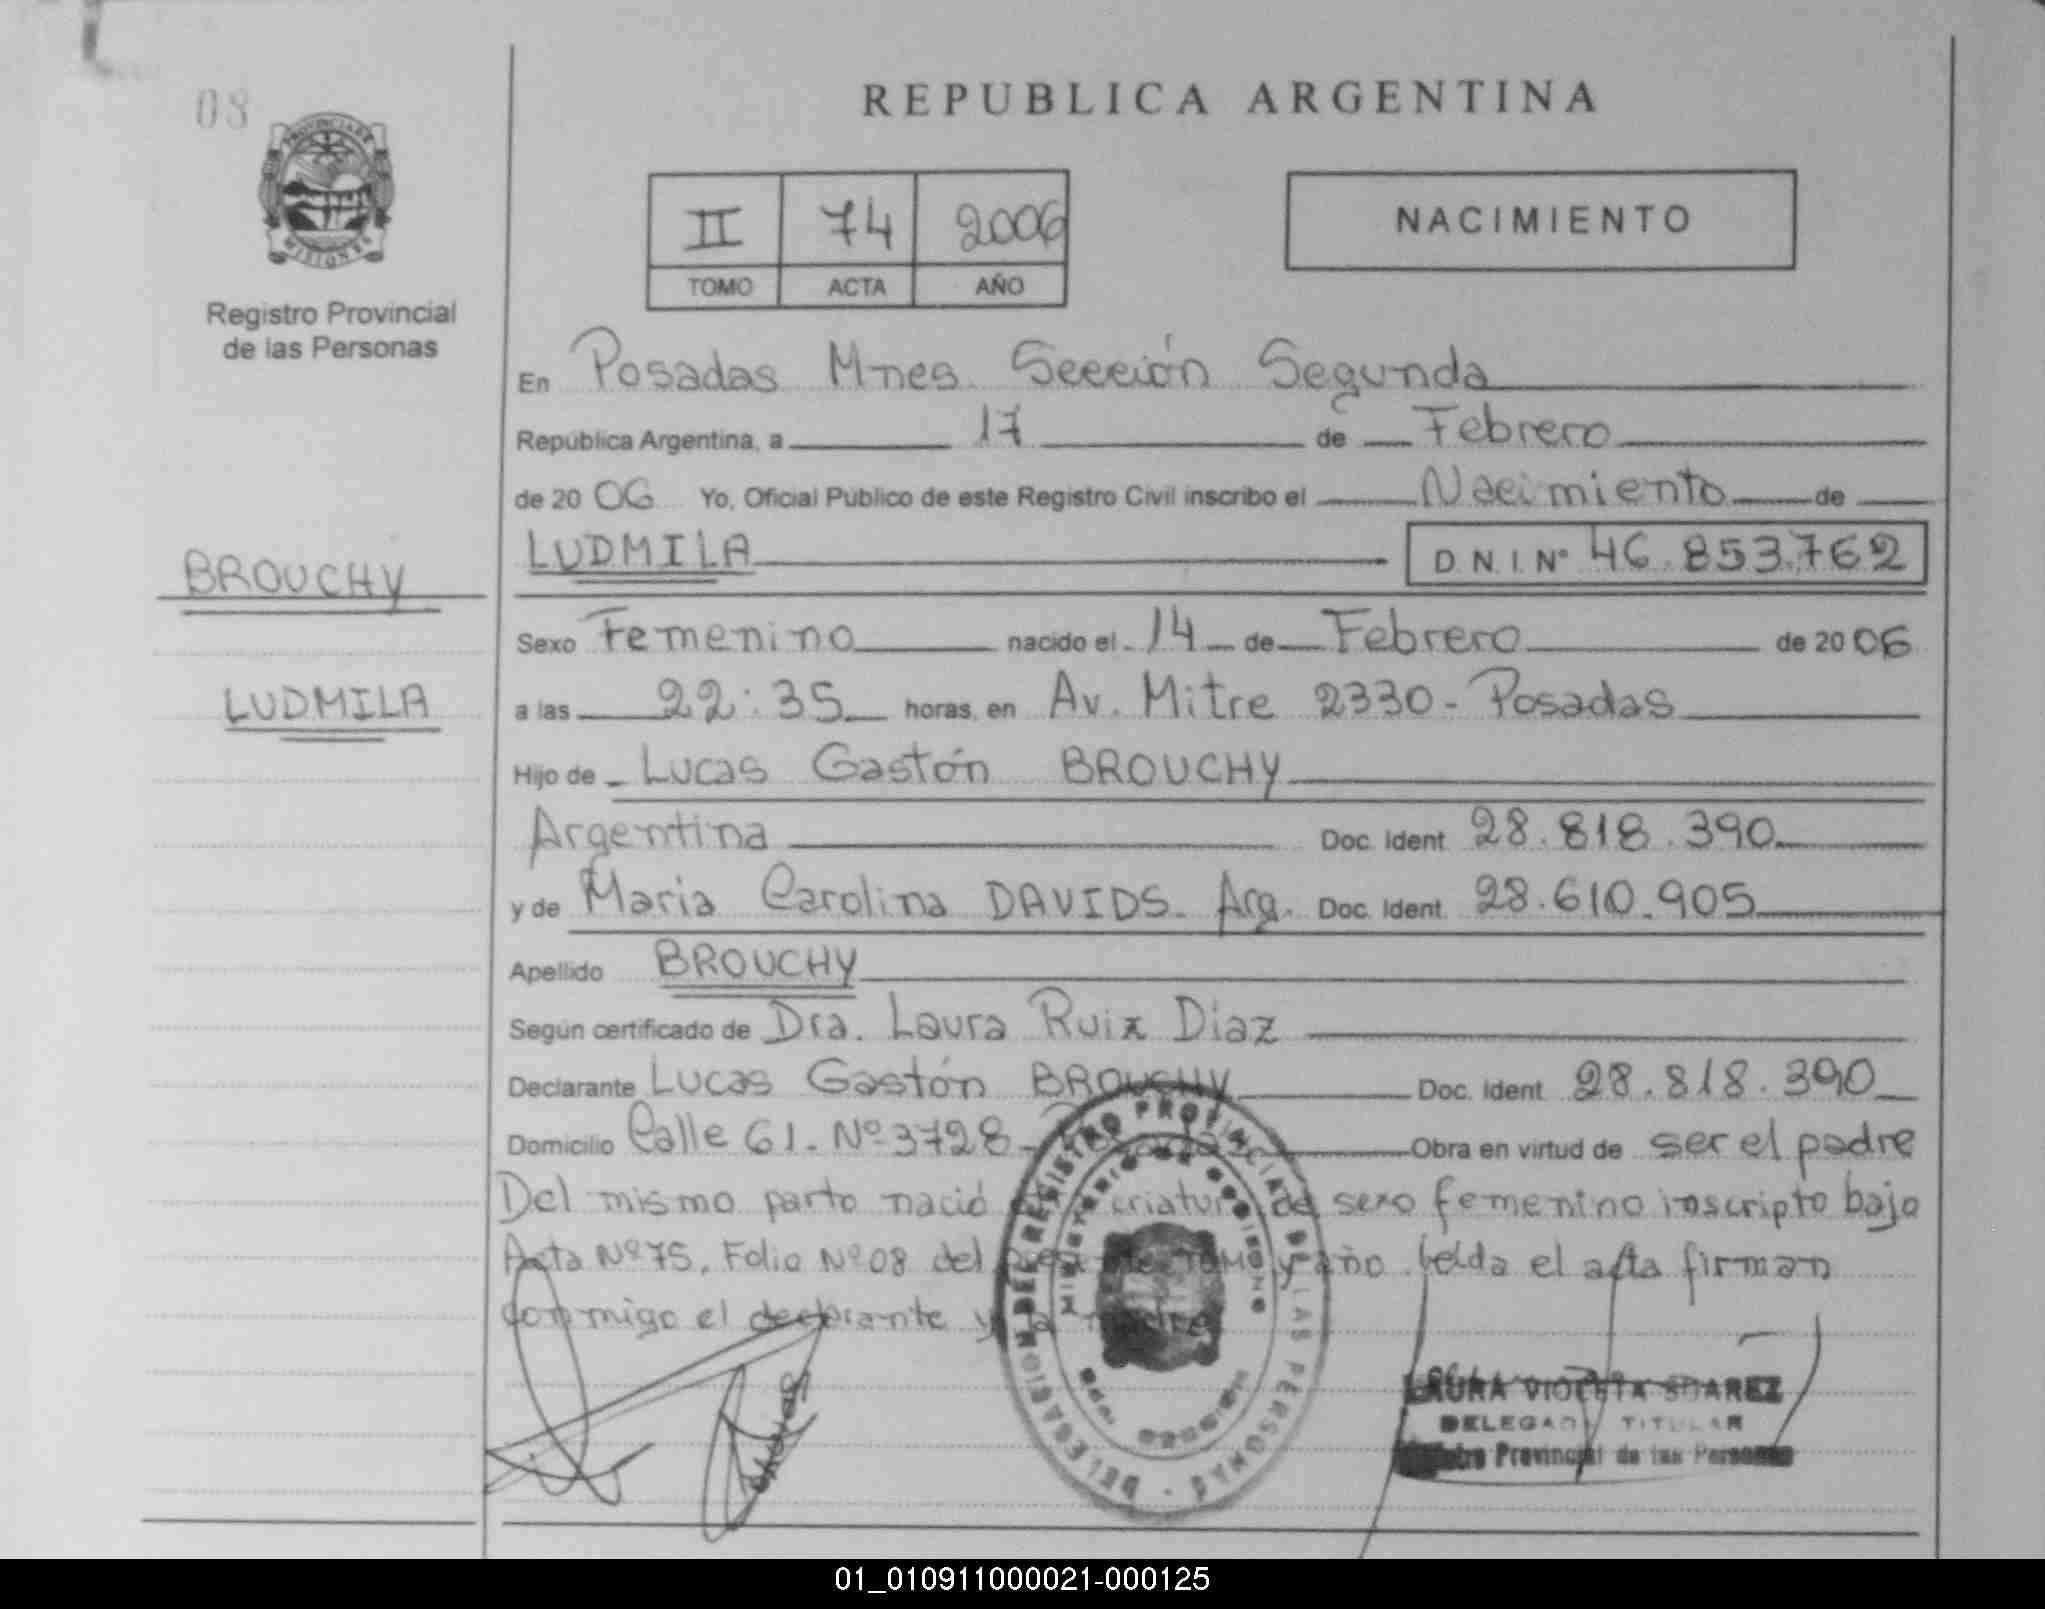 08
PROVINCIA DE
MISIONES
Registro Provincial
de las Personas
REPUBLICA ARGENTINA
II 74 2006
TOMO ACTA AÑO
NACIMIENTO
En Posadas Mnes. Sección Segunda
República Argentina, a 17 de Febrero
de 20 06 Yo, Oficial Público de este Registro Civil inscribo el Nacimiento de
BROUCHY
LUDMILA D.N.I. Nº 46.853.762
Sexo Femenino nacido el 14 de Febrero de 20 06
LUDMILA
a las 22:35 horas, en Av. Mitre 2330 - Posadas
Hijo de Lucas Gastón BROUCHY
Argentina Doc. Ident. 28.818.390
y de Maria Carolina DAVIDS. Arg. Doc. Ident. 28.610.905
Apellido BROUCHY
Según certificado de Dra. Laura Ruiz Diaz
Declarante Lucas Gastón BROUCHY Doc. Ident. 28.818.390
Domicilio Calle 61. Nº 3728 - Obra en virtud de ser el padre
Del mismo parto nació criatura de sexo femenino inscripto bajo
Acta Nº 75, Folio Nº 08 del Tomo y año. Leída el acta firman
conmigo el declarante y la madre
DELEGACION DEL REGISTRO PROVINCIAL DE LAS PERSONAS
MINISTERIO DE GOBIERNO
DAVIDS
LAURA VIOLETA SUAREZ
DELEGADA TITULAR
Registro Provincial de las Personas
01_010911000021-000125